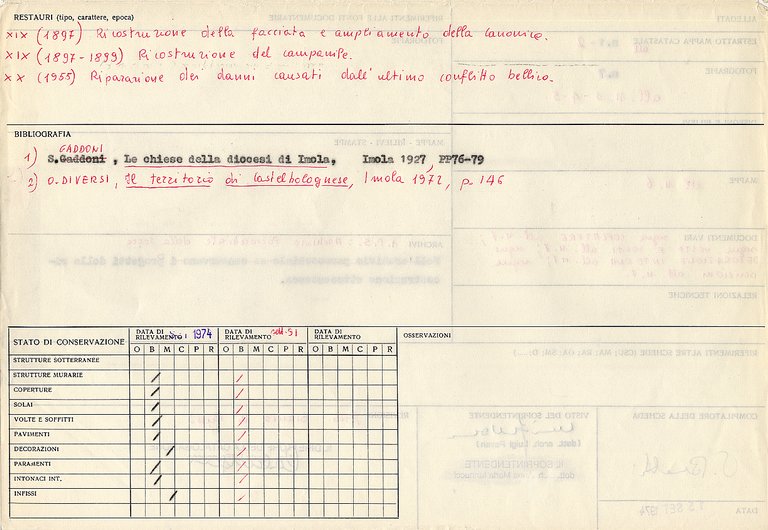 RESTAURI (tipo, carattere, epoca)
XIX (1897) Ricostruzione della facciata e ampliamento della canonica.
XIX (1897-1899) Ricostruzione del campanile.
XX (1955) Riparazione dei danni causati dall'ultimo conflitto bellico.
BIBLIOGRAFIA
GADDONI
1) S.Gaddoni , Le chiese della diocesi di Imola, Imola 1927, PP76-79
2) O. DIVERSI, Il territorio di Castelbolognese, Imola 1972, p. 146
STATO DI CONSERVAZIONE
DATA DI RILEVAMENTO 1974
DATA DI RILEVAMENTO
DATA DI RILEVAMENTO
OSSERVAZIONI
O B M C P R O B M C P R O B M C P R
STRUTTURE SOTTERRANEE
STRUTTURE MURARIE
COPERTURE
SOLAI
VOLTE E SOFFITTI
PAVIMENTI
DECORAZIONI
PARAMENTI
INTONACI INT.
INFISSI